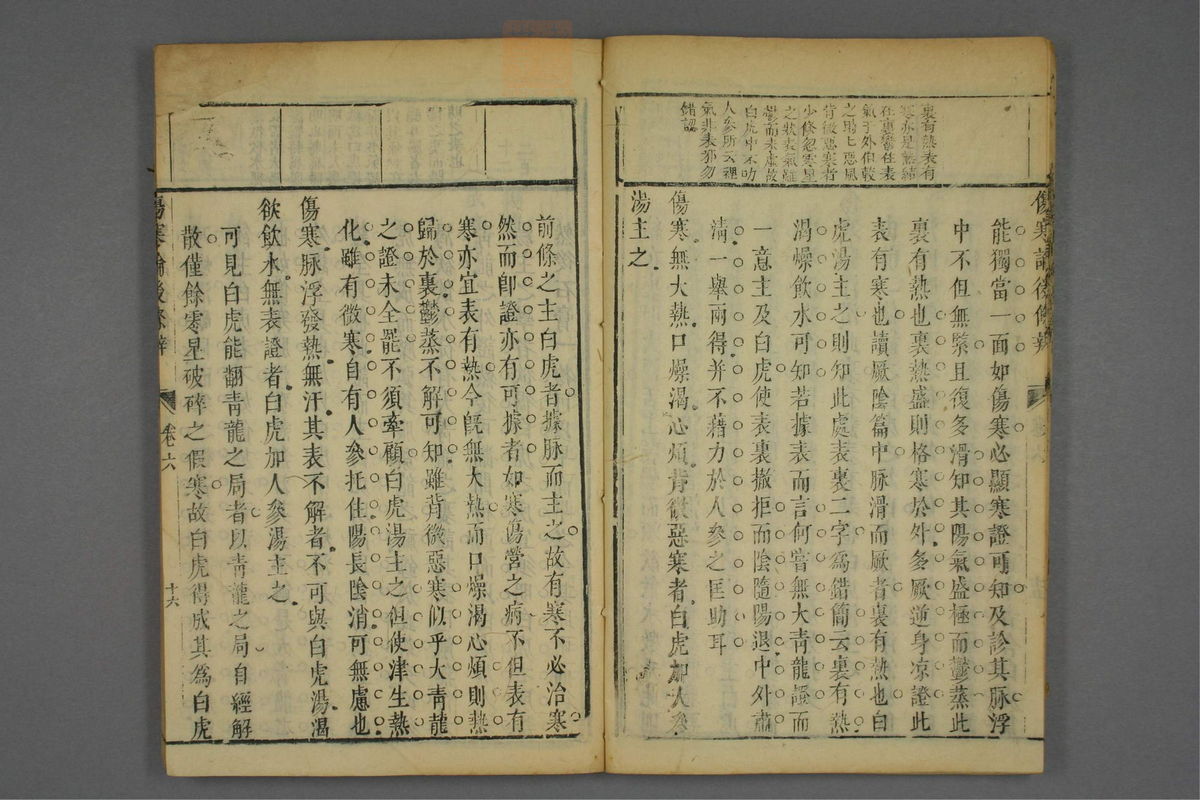 裏有熱表有
寒亦是熱結
在裏鬱住表
氣于外但較
之時七惡風
背微惡寒者
少倏忽零星
之狀表氣雖
鬱而未虛故
白虎中不叻
人參所云裡
氣非表邪勿
錯認
傷寒論後條辨
能獨當一面如傷寒必顯寒證可知及診其脉浮
中不但無緊且復多滑知其陽氣盛極而鬱蒸此
裏有熱也裏熱盛則格寒於外多厥逆身凉證此
表有寒也讀厥陰篇中脉滑而厥者裏有熱也白
虎湯主之則知此處表裏二字為錯簡云裏有熱
渴燥飲水可知若據表而言何嘗無大青龍證而
一意主及白虎使表裏撤拒而陰隨陽退中外肅
清一舉兩得并不藉力於人參之匡助耳
傷寒無大熱口燥渴心煩背微惡寒者白虎加人參
湯主之
前條之主白虎者據脉而主之故有寒不必治寒
然而卽證亦有可據者如寒傷營之病不但表有
寒亦宜表有熱今旣無大熱而口燥渴心煩則熱
歸於裏鬱蒸不解可知雖背微惡寒似乎大青龍
之證未全罷不須牽顧白虎湯主之但使津生熱
化雖有微寒自有人參托住陽長陰消可無慮也
傷寒脉浮發熱無汗其表不解者不可與白虎湯渴
欲飲水無表證者白虎加人參湯主之
可見白虎能翻青龍之局者以青龍之局自經解
散僅餘零星破碎之假寒故白虎得成其為白虎
傷寒論後條辨
卷六
十六